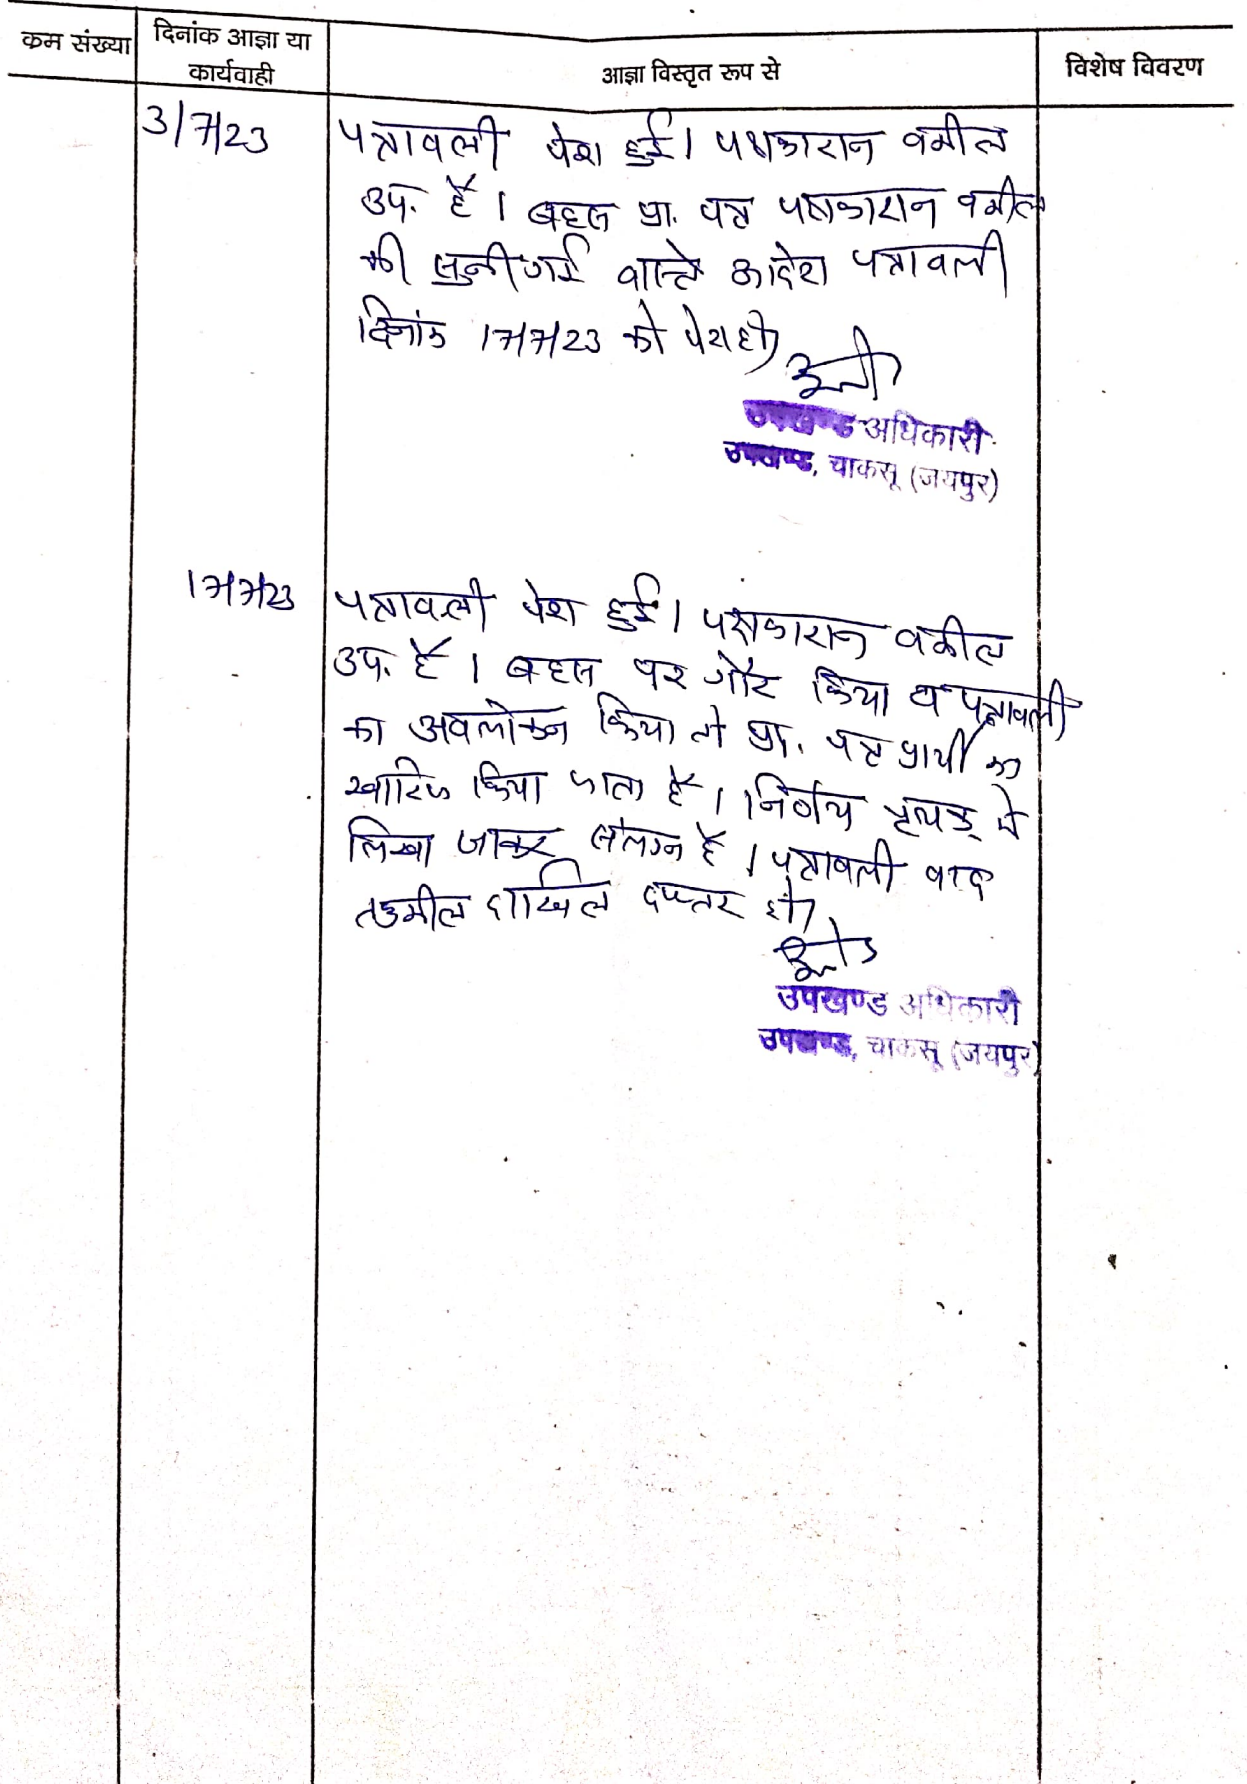 क्रम संख्या
दिनांक आज्ञा या
कार्यवाही
आज्ञा विस्तृत रूप से
विशेष विवरण
3/7/23
पत्रावली पेश हुई। पक्षकारान वकील
उप. हैं। बहस प्रा. पत्र पक्षकारान वकील
की सुनी गई वास्ते आदेश पत्रावली
दिनांक 17/7/23 को पेश हो
उपखण्ड अधिकारी
उपखण्ड, चाकसू (जयपुर)
17/7/23
पत्रावली पेश हुई। पक्षकारान वकील
उप. हैं। बहस पर गौर किया व पत्रावली
का अवलोकन किया तो प्रा. पत्र प्रार्थी का
खारिज किया जाता है। निर्णय पृथक् से
लिखा जाकर संलग्न है। पत्रावली बाद
तकमील दाखिल दफ्तर हो।
उपखण्ड अधिकारी
उपखण्ड, चाकसू (जयपुर)